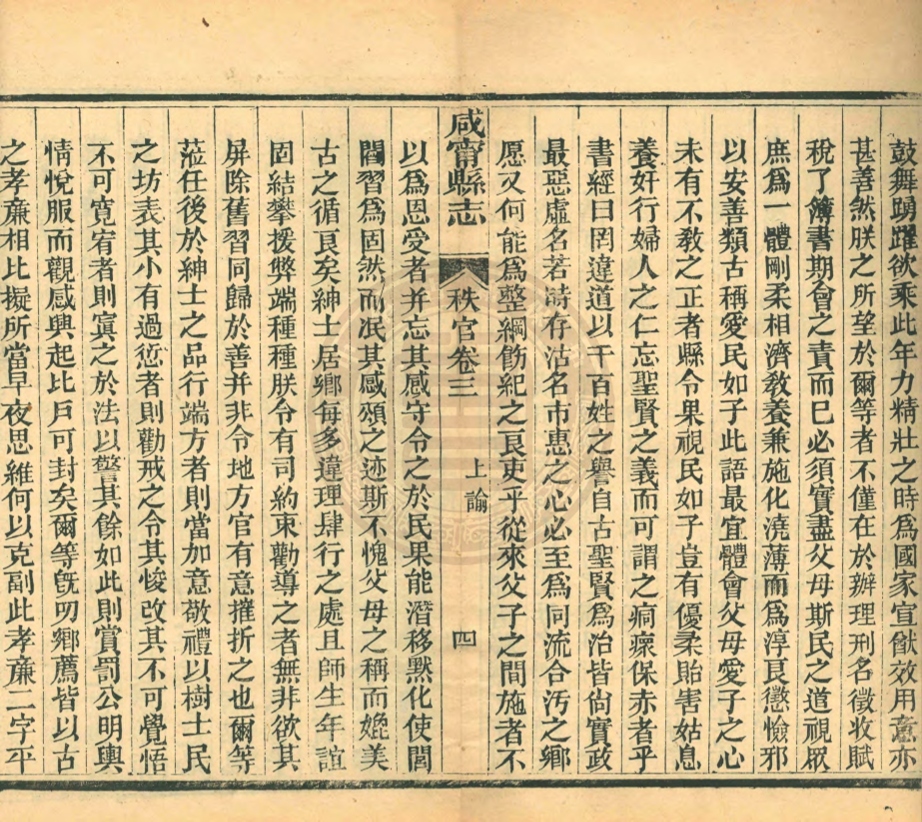 鼓舞踴躍欲乘此年力精壯之時爲國家宣猷效用意亦
甚善然朕之所望於爾等者不僅在於辦理刑名徵收賦
稅了簿書期會之責而巳必須實盡父母斯民之道視眾
庶爲一體剛柔相濟教養兼施化澆薄而爲淳良懲憸邪
以安善類古稱愛民如子此語最宜體會父母愛子之心
未有不教之正者縣令果視民如子豈有優柔貽害姑息
養奸行婦人之仁忘聖賢之義而可謂之痌瘝保赤者乎
書經曰罔違道以干百姓之譽自古聖賢爲治皆尙實政
最惡虛名若時存沽名市惠之心必至爲同流合汚之鄉
愿又何能爲整綱飭紀之良吏乎從來父子之間施者不
咸甯縣志 秩官卷三 上諭 四
以爲恩受者并忘其感守令之於民果能潛移默化使閭
閻習爲固然而泯其感頌之迹斯不愧父母之稱而媲美
古之循良矣紳士居鄉每多違理肆行之處且師生年誼
固結攀援弊端種種朕令有司約束勸導之者無非欲其
屏除舊習同歸於善并非令地方官有意摧折之也爾等
蒞任後於紳士之品行端方者則當加意敬禮以樹士民
之坊表其小有過愆者則勸戒之令其悛改其不可覺悟
不可寬宥者則寘之於法以警其餘如此則賞罰公明輿
情悅服而觀感興起比戸可封矣爾等旣叨鄉薦皆以古
之孝亷相比擬所當早夜思維何以克副此孝亷二字平